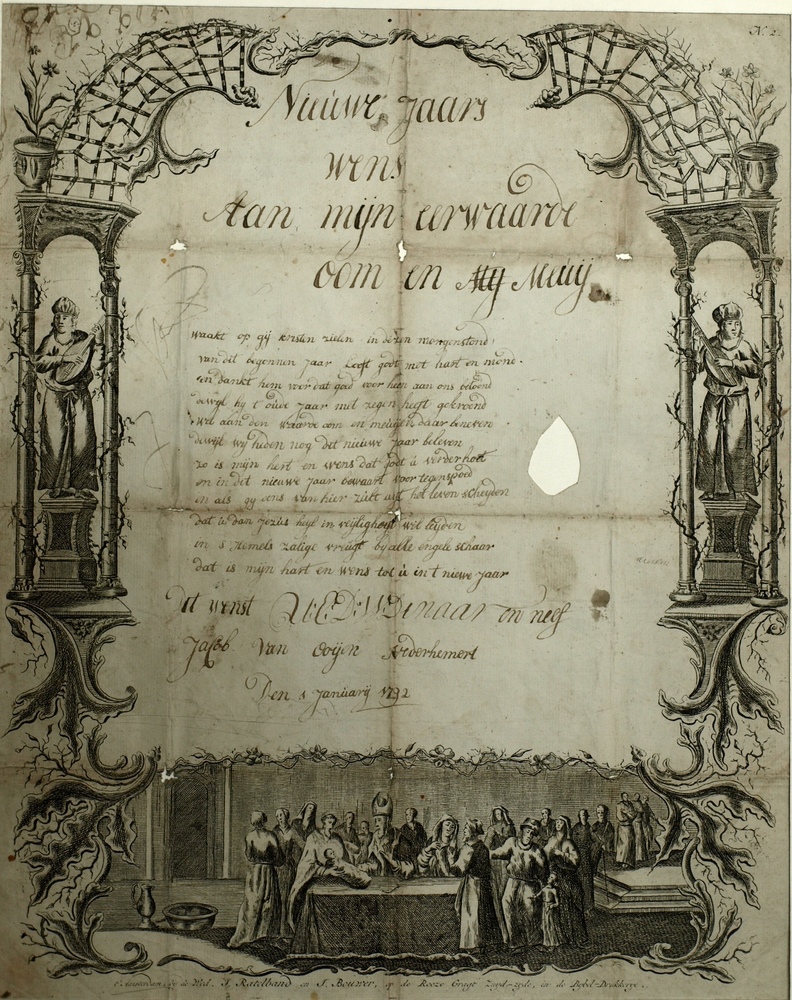 N. 2.
Nieuwe Jaars
wens
Aan mijn eerwaarde
oom en Meuij
waakt op gij kristen zielen in dezen morgenstond
van dit begonnen jaar looft godt met hart en mond
en dankt hem voor dat goed voor heen aan ons beloond
dewijl hij t oude jaar met zegen heeft gekroond
wel aan den waarde oom en meuije daar beneven
dewijl wij huden nog dit nieuwe jaar beleven
zo is mijn hert en wens dat godt u verder hoet
en in dit nieuwe jaar bewaart voor tegenspoed
en als gy eens van hier zult uijt het leven scheyden
dat u dan jezus heyl in veyligheyt wil leyden
in s hemels zalige vreugt by alle engele schaar
dat is mijn hart en wens tot u in t niewe jaar
Dit wenst UED:WDinaar en neef
Jacob van ooijen Nederhemert
Den 1 Januarij 1792
t'Amsterdam, by de Wed. J. Ratelband en J. Bouwer, op de Rooze Gragt Zuyd-zyde, in de Bybel-Drukkerye.